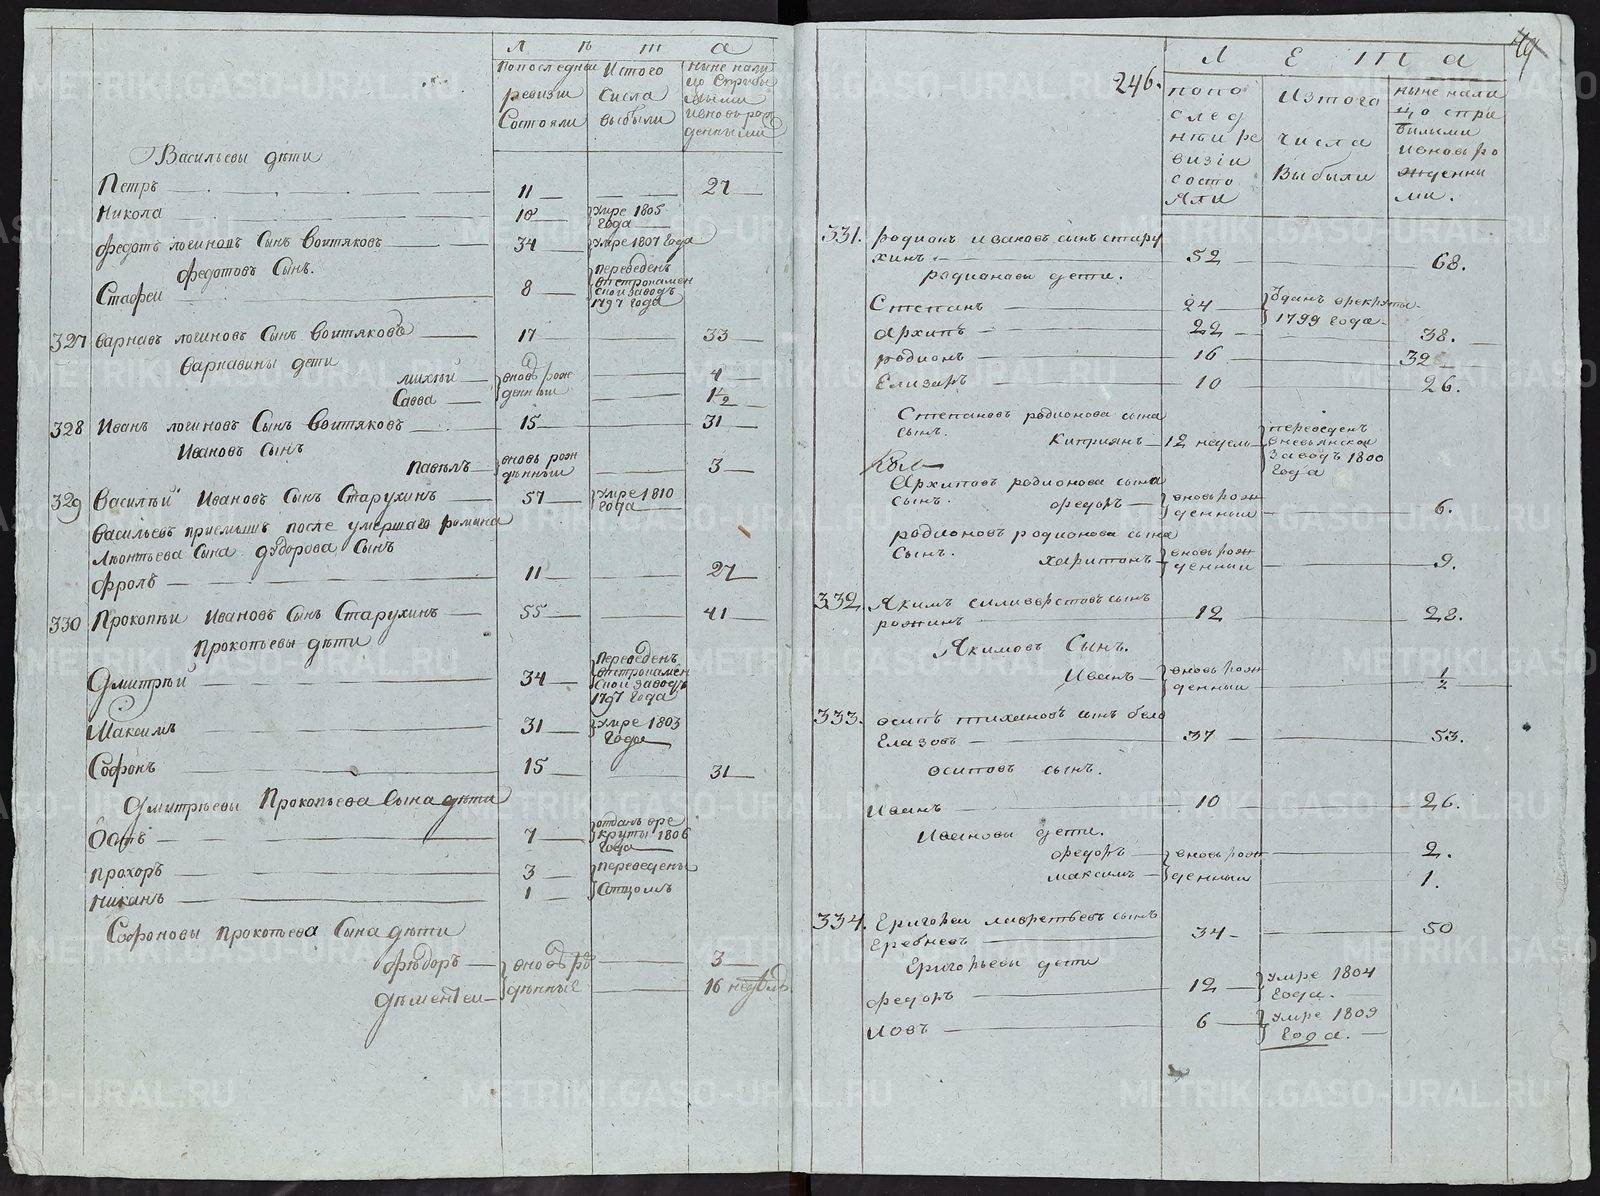 Л ѣ т а
Попоследнеи Истого ныне нали
ревизии Сисла цо Сприбы
Состояли выбыли лыми
ивновь рож
денными
Васильевы дѣти
Петръ 11 27
Никола 10 умре 1805
Года
Федотъ логиновъ Сынъ Воитяковъ 34 умре 1807 Года
Федотовъ Сынъ.
Стафеи 8 переведенъ
вастрокамен
скои заводъ
1797 Года
327 Варнавъ логиновъ Сынъ Воитяковъ 17 33
Варнавины дети
михѣй вновь рож 4
Савва денныи 1 1/2
328 Иванъ логиновъ Сынъ Воитяковъ 15 31
Ивановъ Сынъ
Павѣлъ вновь рож 3
дѣнныи
329 Василѣй Ивановъ Сынъ Старухинъ 57 умре 1810
Года
Васильевъ приемышъ после умершаго романа
Леонтьева Сына Сынъ
Фролъ 11 27
330 Прокопѣи Ивановъ Сынъ Старухинъ 55 41
Прокопьевы дѣти
Дмитрѣй 34 Переведенъ
вастрокамен
скои заводъ
1797 Года
Максимъ 31 умре 1803
Года
Софонъ 15 31
Дмитрѣевы Прокопьева Сына дѣти
Осипъ 7 отданъ вре
круты 1806
Года
Прохоръ 3 переведены
Никанъ 1 Сотцомъ
Софоновы прокопьева Сына дѣти
Фѣдоръ вновь ро 3
Дѣментеи дѣнные 16 недѣль
49
246.
Л Е т а
попо Изтого ныне нали
след числа цо спри
нѣи ре Выбыли былими
визіи ивновь ро
состо жденны
яли ми.
331. родионъ ивановъ сынъ стару
хинъ 52 68.
родионавы дети.
Степанъ 24 Зданъ врекруты
1799 Года
Архипъ 22 38.
родионъ 16 32
Елизаръ 10 26.
Степановъ родионова сына
сынъ. Киприянъ 12 недель переведенъ
вневьянской
заводъ 1800
Года
Архиповъ родионова сына
сынъ. федоръ вновь рож 6.
денныи
родионовъ родионова сына
сынъ. харитонъ вновь рож 9.
денныи
332. Якимъ силиверстовъ сынъ
рожинъ 12 28.
Якимовъ Сынъ.
Иванъ вновь рож 1/2
денныи
333. осипъ тихановъ сынъ бело
Глазовъ 37 53.
осиповъ сынъ.
Иванъ 10 26.
Ивановы дети.
федоръ вновь рож 2.
максимъ денныи 1.
334. Григореи лаврентьевъ сынъ
Гребневъ 34 50
Григорьевы дети
федоръ 12 умре 1804
Года.
Иовъ 6 умре 1809
Года.
METRIKI.GASO-URAL.RU